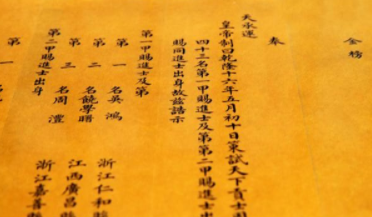 金榜
奉
天承運
皇帝制曰乾隆十六年五月初十日策試天下貢士
四十三名第一甲賜進士及第第二甲賜進士
賜同進士出身故茲誥示
第一甲賜進士及第
第一名吳鴻 浙江仁和縣
第二名饒學曙 江西廣昌縣
第三名周澧 浙江嘉善縣
第二甲賜進士出身